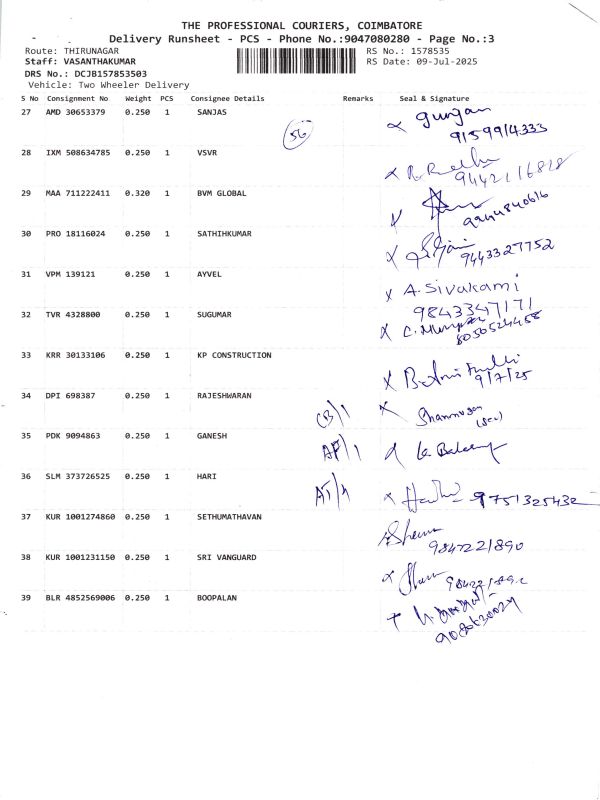 THE PROFESSIONAL COURIERS, COIMBATORE
Delivery Runsheet - PCS - Phone No.:9047080280 - Page No.:3
Route: THIRUNAGAR RS No.: 1578535
Staff: VASANTHAKUMAR RS Date: 09-Jul-2025
DRS No.: DCJB157853503
Vehicle: Two Wheeler Delivery
S No Consignment No Weight PCS Consignee Details Remarks Seal & Signature
27 AMD 30653379 0.250 1 SANJAS
56
28 IXM 508634785 0.250 1 VSVR
29 MAA 711222411 0.320 1 BVM GLOBAL
30 PRO 18116024 0.250 1 SATHIHKUMAR
9443327752
31 VPM 139121 0.250 1 AYVEL
A. Sivakami
9843347171
32 TVR 4328800 0.250 1 SUGUMAR
33 KRR 30133106 0.250 1 KP CONSTRUCTION
9/7/25
34 DPI 698387 0.250 1 RAJESHWARAN
35 PDK 9094863 0.250 1 GANESH
36 SLM 373726525 0.250 1 HARI
9751325432
37 KUR 1001274860 0.250 1 SETHUMATHAVAN
9847221890
38 KUR 1001231150 0.250 1 SRI VANGUARD
39 BLR 4852569006 0.250 1 BOOPALAN